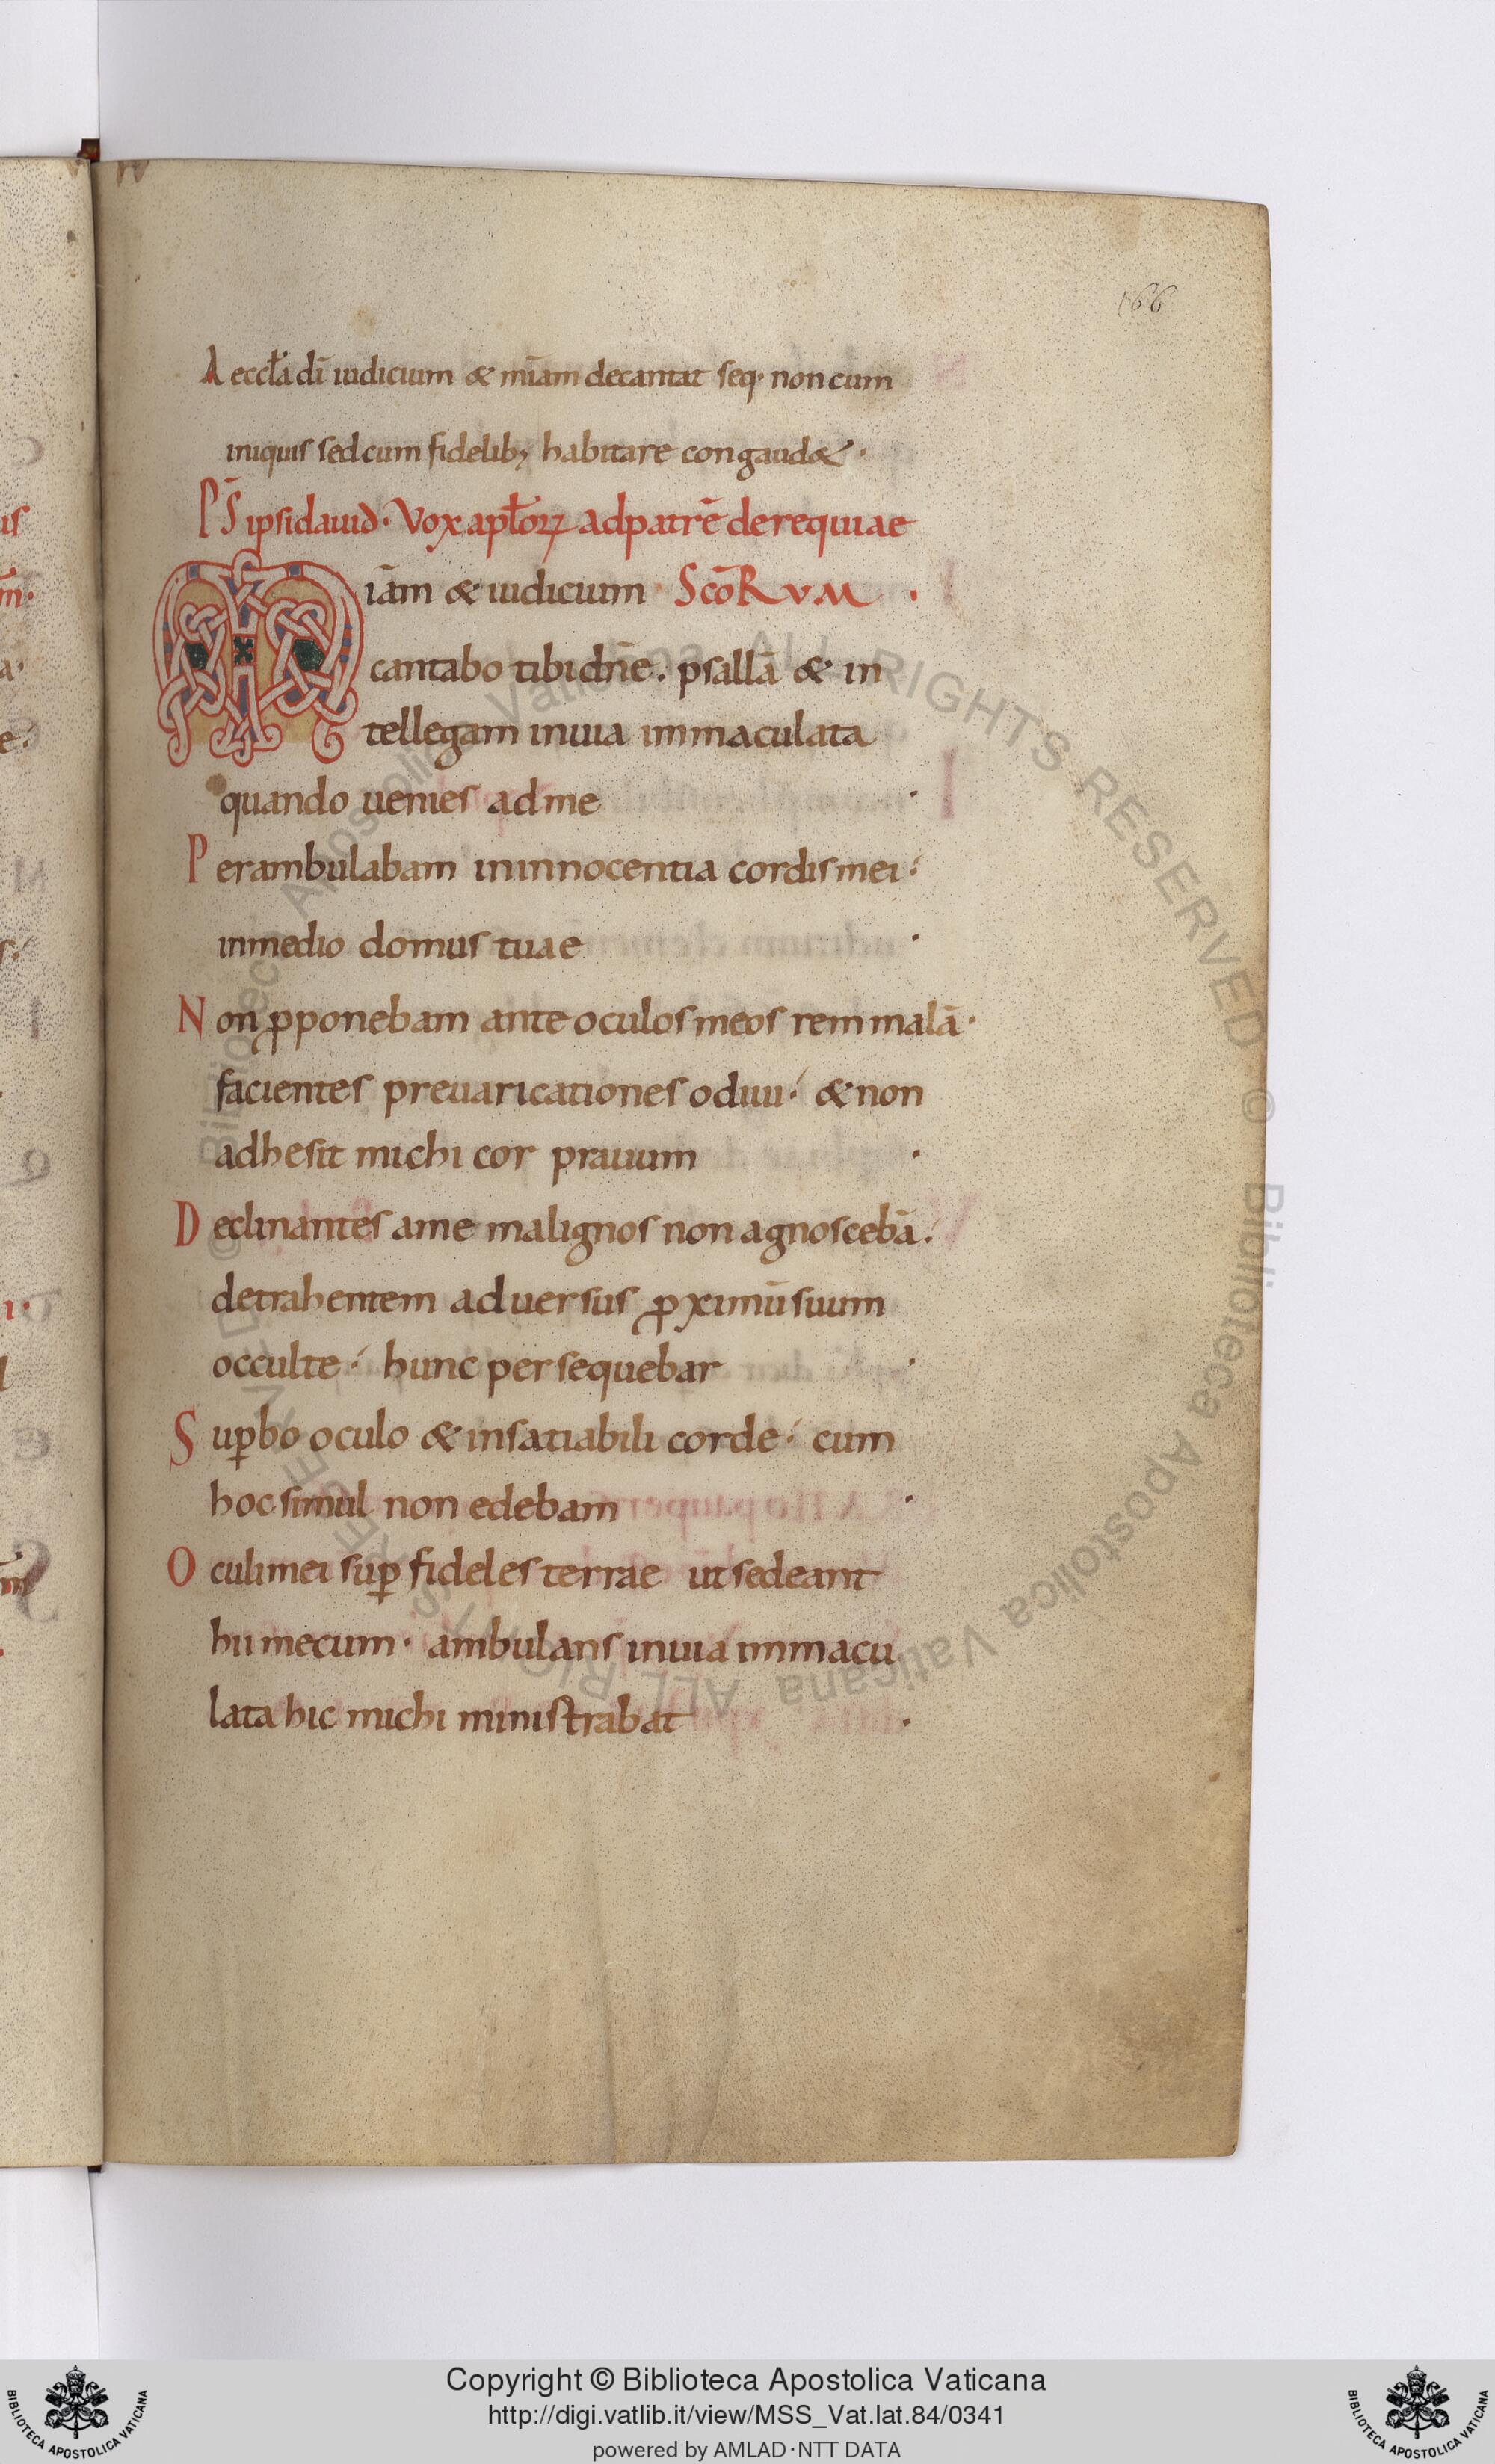 166
A eccłᷓa dī iudicium & mīam decantat seq· non cum
iniquis sed cum fidelib; habitare congaud&·
PS̄ ipsi dauid· Vox apłorꝝ ad patrē de requiae
M iām & iudicium ScōRVM ·
cantabo tibi dn̄e. psallā & in
tellegam in uia immaculata
quando uenies ad me ·
Perambulabam in innocentia cordis mei:
in medio domus tuae ·
Non ꝓponebam ante oculos meos rem malā·
facientes preuaricationes odiui: & non
adhesit michi cor prauum ·
Declinantes a me malignos non agnoscebā:
detrahentem aduersus ꝓximū suum
occulte: hunc persequebar ·
Suꝑbo oculo & insatiabili corde: cum
hoc simul non edebam ·
Oculi mei suꝑ fideles terrae ut sedeant
hii mecum· ambulans in uia immacu
lata hic michi ministrabat ·
Copyright © Biblioteca Apostolica Vaticana
http://digi.vatlib.it/view/MSS_Vat.lat.84/0341
powered by AMLAD·NTT DATA
BIBLIOTECA APOSTOLICA VATICANA
BIBLIOTECA APOSTOLICA VATICANA
© Biblioteca Apostolica Vaticana ALL RIGHTS RESERVED © Biblioteca Apostolica Vaticana ALL RIGHTS RESERVED